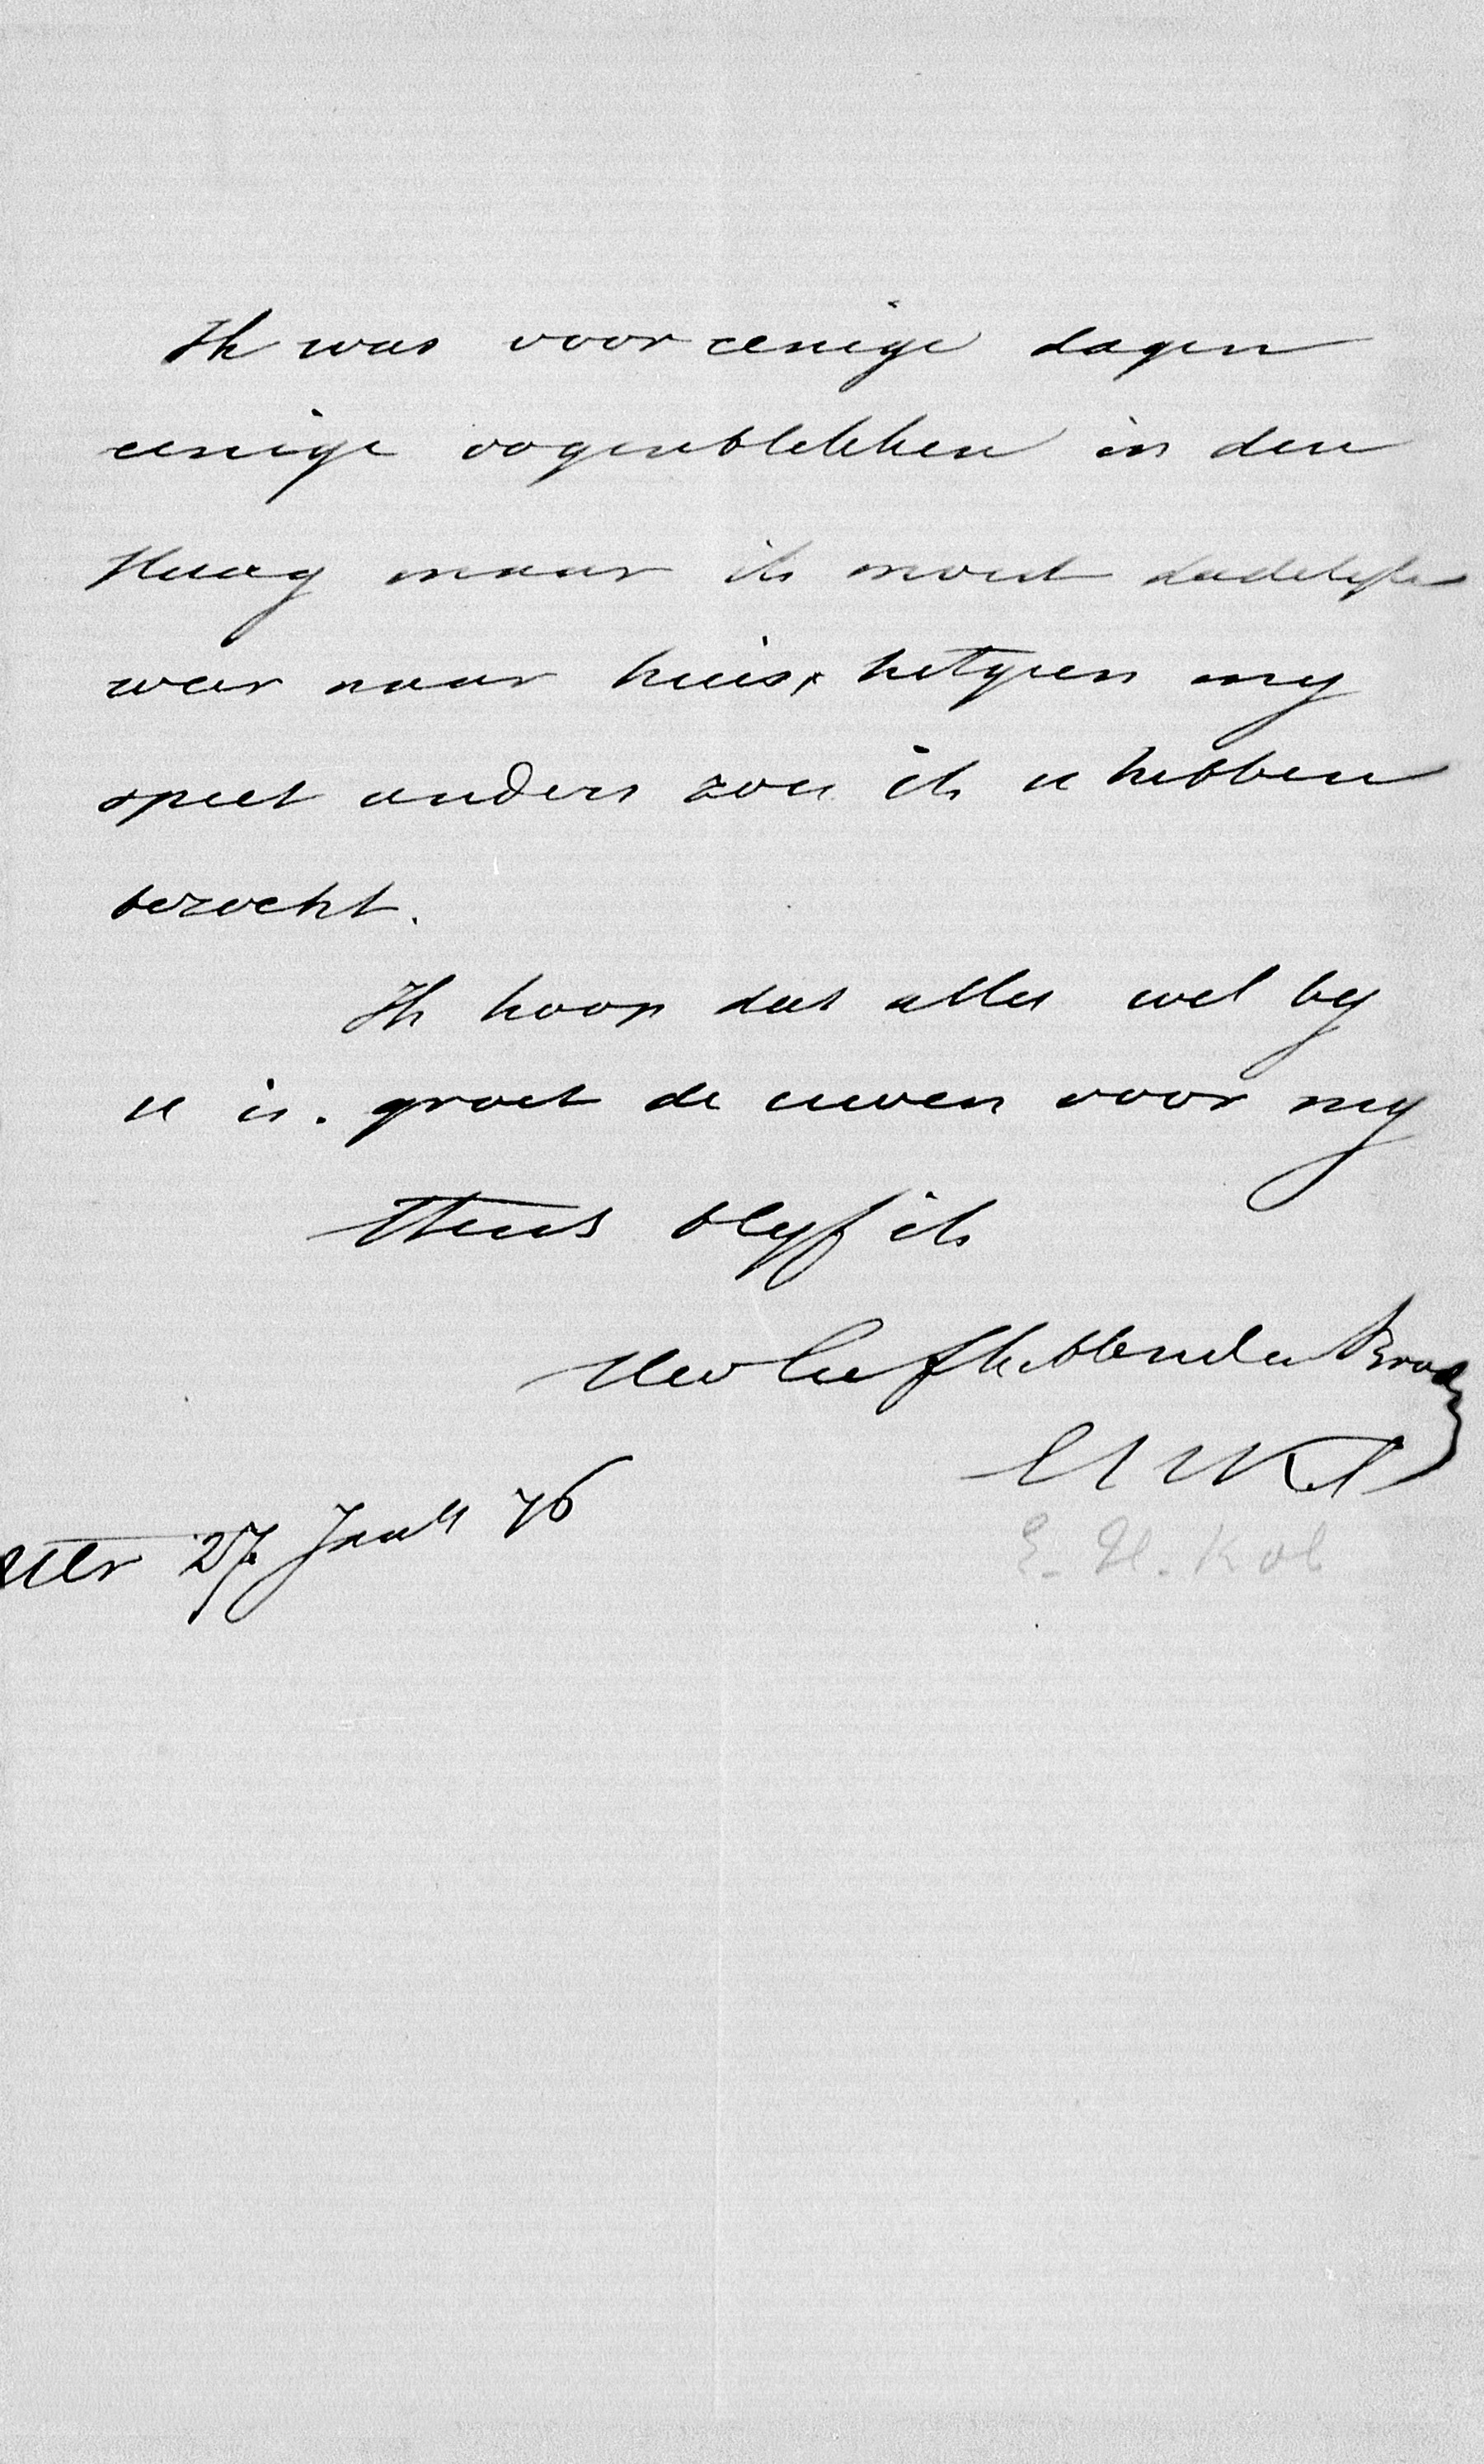 Ik was voor eenige dagen
eenige oogenblikken in den
Haag maar ik moest dadelijk
weer naar huis, hetgeen my
speet anders zou ik u hebben
bezocht.
Ik hoop dat alles wel by
u is. groet de uwen voor my
Steeds blyf ik
Uw liefhebbende Broeder
EHKol
Utr 27 Jan 76
E. H. Kol